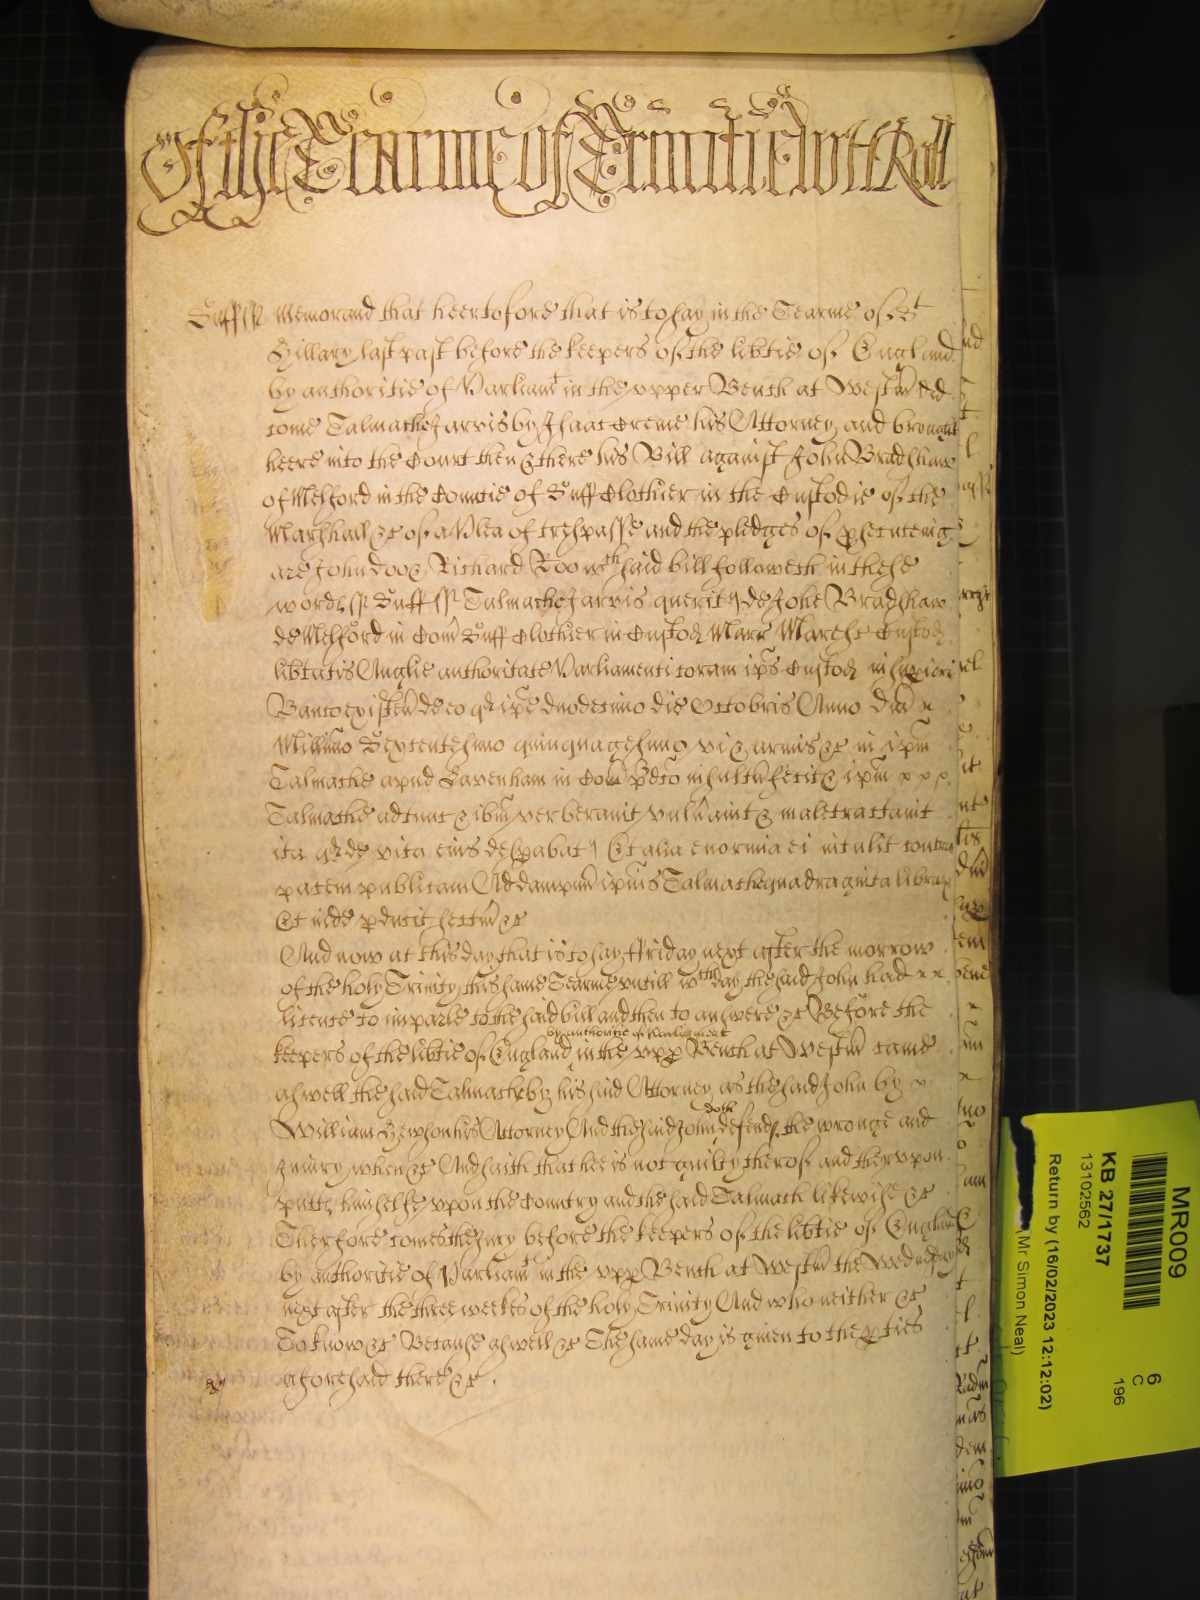 Of the Tearme of Trinitie Witt Roll
Suff ss Memorand that heertofore that is to say in the Tearme of St
Hillary last past before the keepers of the libtie of England
by authoritie of Parliamt in the vpper Bench at Westm did
come Talmache Jarvis by Isaac Creme his Attorney and brought
heere into the Court then & there his Bill against John Bradshaw
of Melford in the Countie of Suff Clothier in the Custodie of the
Marshall &c of a Plea of trespasse and the pledges of prosecuteing
are John Doo & Richard Roo wch said bill followeth in these
words ss Suff ss Talmache Jarvis querit de Johe Bradshaw
de Melford in Com Suff Clothier in Custod Marr Maresc Custod
libtatis Anglie authoritate Parliamenti coram ipis Custod in superiori
Banco existen de eo qd ipe duodecimo die Octobris Anno Dni
Millimo Sexcentesimo quinquagesimo vi & armis &c in ipm
Talmache apud Lavenham in Com pdco insultu fecit & ipm
Talmache adtunc & ibm verberavit vulnavit & maletractavit
ita qd de vita eius despabat Et alia enormia ei intulit contra
pacem publicam Ad dampnu ipius Talmache quadraginta librar
Et inde pducit sectam &c
And now at this day that is to say ffriday next after the morrow
of the holy Trinity this same Tearme vntill wch day the said John had
licence to imparle to the said bill and then to answere &c Before the
by authoritie of Parliament
keepers of the libtie of England in the vpp Bench at Westm came
aswell the said Talmache by his said Attorney as the said John by
doth
William Hewson his Attorney And the said John defends the wronge and
Iniury when &c And saith that hee is not guilty therof and thervpon
putts himselfe vpon the Country and the said Talmach likewise &c
Therfore comes the Jury before the keepers of the libtie of England
by authoritie of Parliamt in the vpp Bench at Westm the Wednesday
next after the three weekes of the holy Trinity And who neither &c
To know &c Because aswell &c The same day is given to the pties
aforesaid there &c .
MR009
6
C
196
KB 27/1737
13102562
Return by (16/02/2023 12:12:02)
Mr Simon Neal)